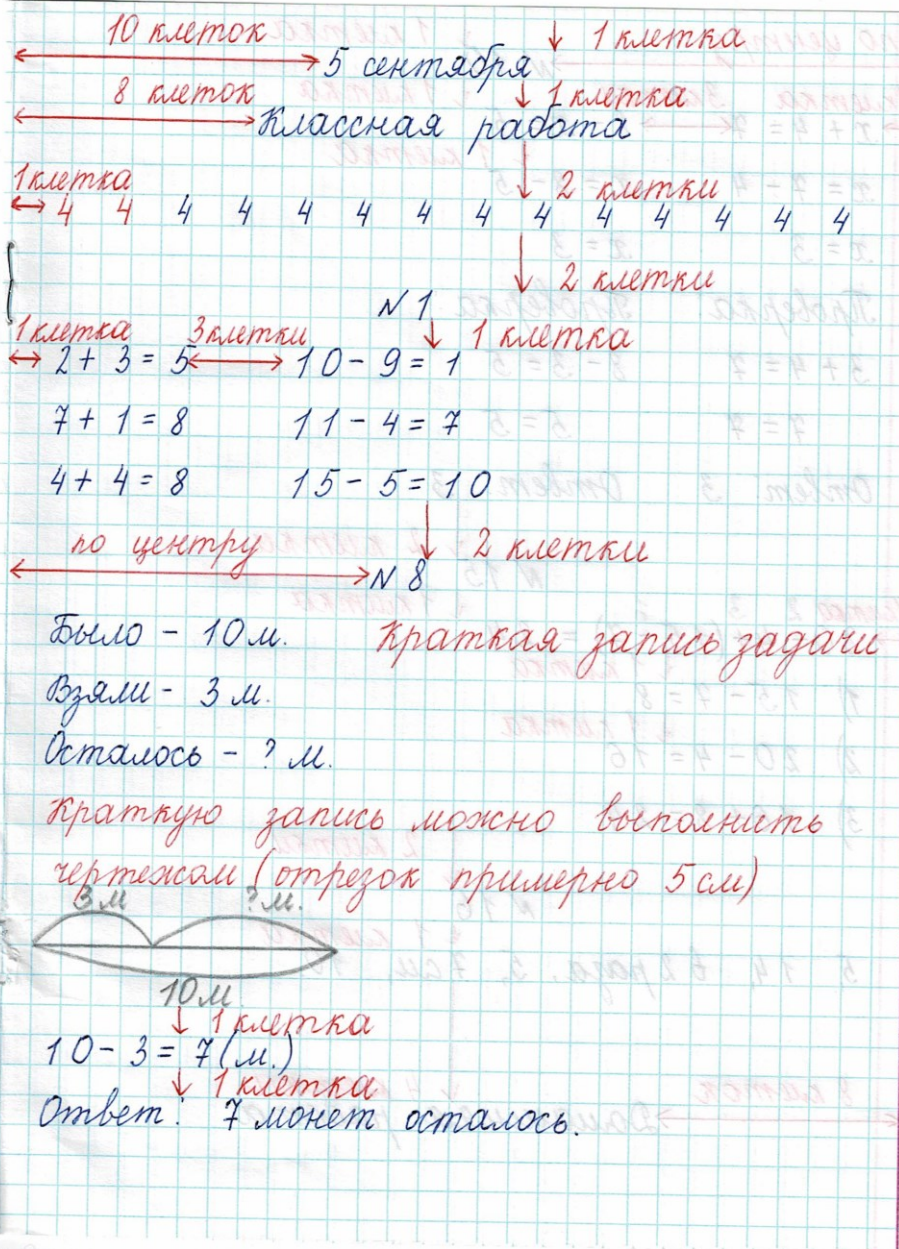 10 клеток 1 клетка
5 сентября
8 клеток 1 клетка
Классная работа
1 клетка 2 клетки
4 4 4 4 4 4 4 4 4 4 4 4 4 4
2 клетки
N 1
1 клетка 3 клетки 1 клетка
2 + 3 = 5 10 - 9 = 1
7 + 1 = 8 11 - 4 = 7
4 + 4 = 8 15 - 5 = 10
по центру 2 клетки
N 8
Было - 10 м. Краткая запись задачи
Взяли - 3 м.
Осталось - ? м.
Краткую запись можно выполнить
чертежом (отрезок примерно 5 см)
3 м ? м.
10 м
1 клетка
10 - 3 = 7 (м.)
1 клетка
Ответ: 7 монет осталось.